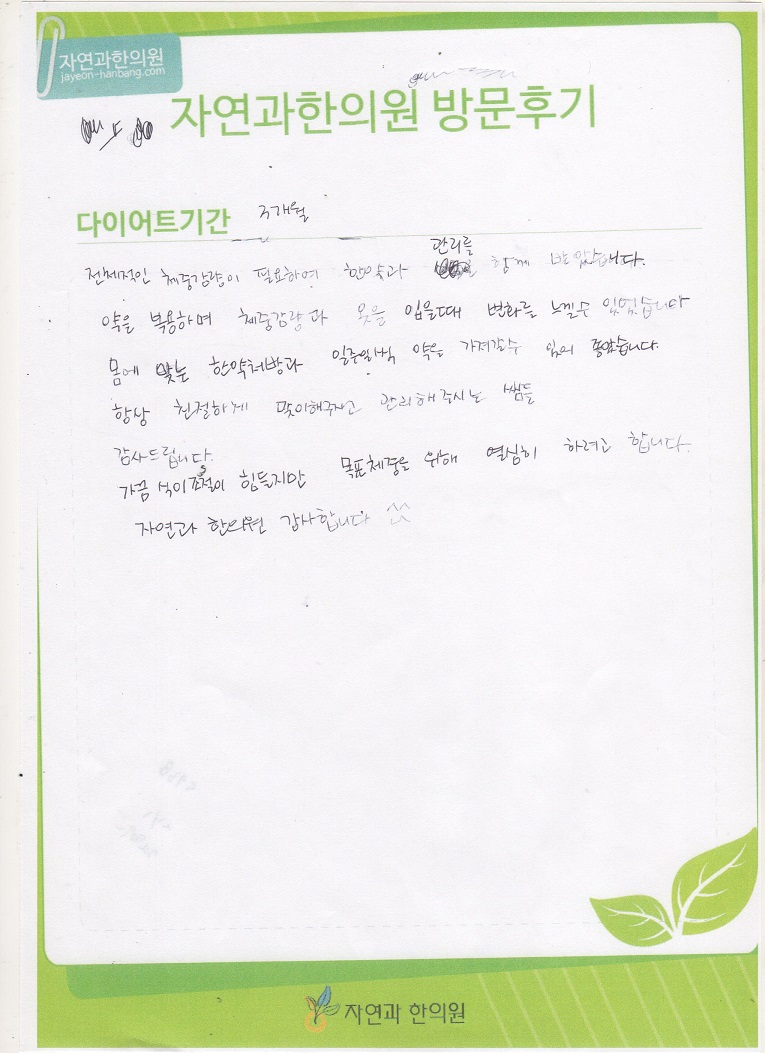 자연과한의원
jayeon-hanbang.com
자연과한의원 방문후기
다이어트기간 3개월
관리를
전체적인 체중감량이 필요하여 한약과 함께 받았습니다.
약을 복용하며 체중감량과 옷을 입을때 변화를 느낄수 있었습니다
몸에 맞는 한약처방과 일주일씩 약을 가져갈수 있어 좋았습니다.
항상 친절하게 맞이해주시고 관리해주시는 쌤들
감사드립니다.
가끔 식이조절이 힘들지만 목표체중을 위해 열심히 하려고 합니다.
자연과 한의원 감사합니다 ^^
자연과 한의원